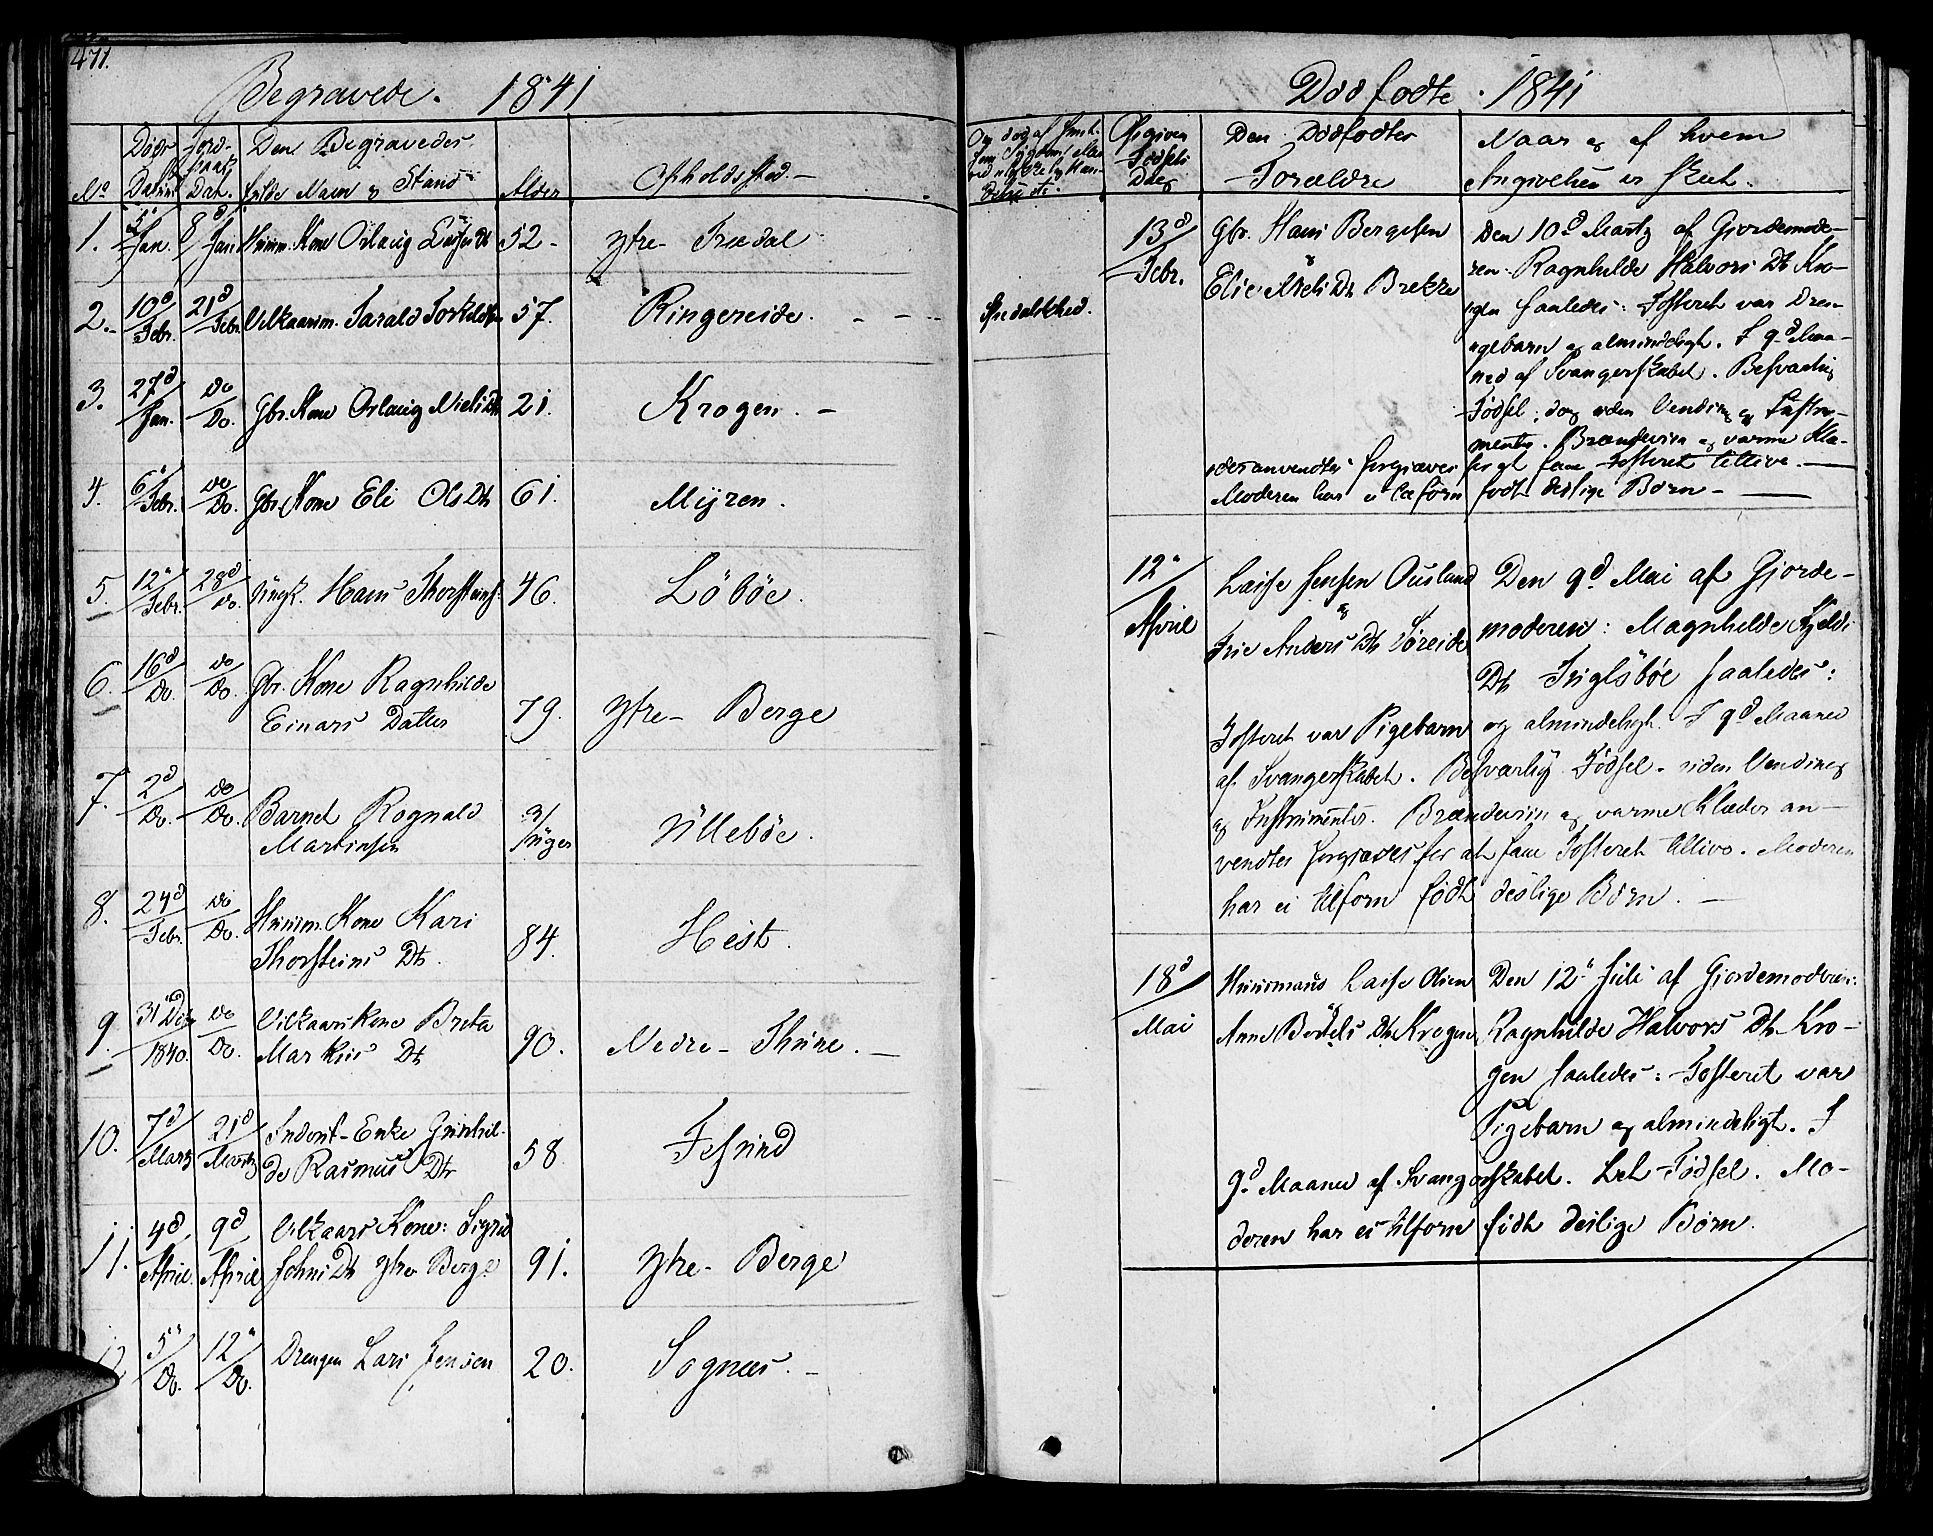 471.
Begravede. 1841
No
Døds Datum
Jord- Dat.
Den Begravedes fulde Navn og Stand
Alder
Opholdssted.
1. 5te Jan. 8d Jan. Huusm. Kone Orlaug Dt 52 - Ytre-
2. 10d Febr. 21d Febr. Vilkaarsm. Tarald Torkelds. 57. Ringereide.
3. 27d Jan. do Do. Gbr. Kone Orlaug Niels Dt 21. Krogen. -
4. 6te Febr. do Do. Gbr. Kone Eli Ols Dt 61. Myren.
5. 12te Febr. 28d do. Ungk. Hans Thorsteins. 46. Løbøe.
6. 16d Do. do Do. Gbr. Kone Ragnhilde
Einars Datter 79. Ytre- Berge
7. 2d Do. do Do. Barnet Rognald
Martinsen 3/Uger Üllebøe.
8. 24d Febr. do Do. Huusm. Kone Kari
Thorsteins Dt. 84. Hest.
9. 31te Dec 1840. do Do. Vilkaars Kone Breta
Markus Dt 90. Nedre- Thune. -
10. 7d Martz 21d Martz Inderst-Enke Gunhil-
de Rasmus Dt 58. Føsund
11. 4d April. 9d April Vilkaars Kone: Sigrid
Johns Dt Ytre Berge 91. Ytre- Berge
5te Do. 12te Do. Drengen Lars Jensen 20. Sognæs. -
Dødfødte. 1841
Spedalskhed.
Opgiven Fødsels Dag
Den Dødfødtes
Forældre
Naar og af hvem
Angivelsen er skeet.
13d Febr.
Gbr. Hans Bergesen
og
Elie Niels Dt Brekke
Den 10d Martz af Gjordemode-
ren: Ragnhilde Halvors Dt Kro-
gen saaledes: Fosteret var Dren-
gebarn og almindeligt. I 9d Maa-
ned af Svangerskabet. Besværlig
Fødsel, dog uden Vending og Instru-
menter. Brændeviin og varme Klæ-
der anvendtes forgjæves for at faae Fosteret tillive. -
Moderen har ei tilforn født deslige Børn -
12te April
Lasse Jensen Ousland
og
Anders Dt Søreide
Den 9d Mai af Gjorde-
moderen: Magnhilde Kjelds
Dt Inglsbøe saaledes:
Fosteret var Pigebarn og almindeligt. I 9d Maaned
af Svangerskabet. Besværlig Fødsel - uden Vending
og Instrumenter. Brændeviin og varme Klæder an-
vendtes forgjæves for at faae Fosteret tillive. Moderen
har ei tilforn født deslige Børn. -
18d Mai
Huusmand Lasse Olsen
og
Anne Bottels Dt Krogen
Den 12te Juli af Gjordemoderen:
Ragnhilde Halvors Dt Kro-
gen saaledes: Fosteret var
Pigebarn og almindeligt. I
9d Maaned af Svangerskabet. Let Fødsel. Mo-
deren har ei tilforn født deslige Børn.